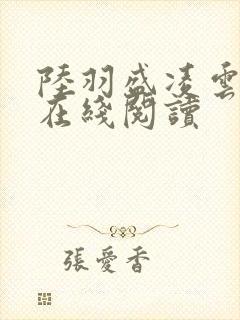 陸羽盛凌雲
在綫閱讀
張愛香